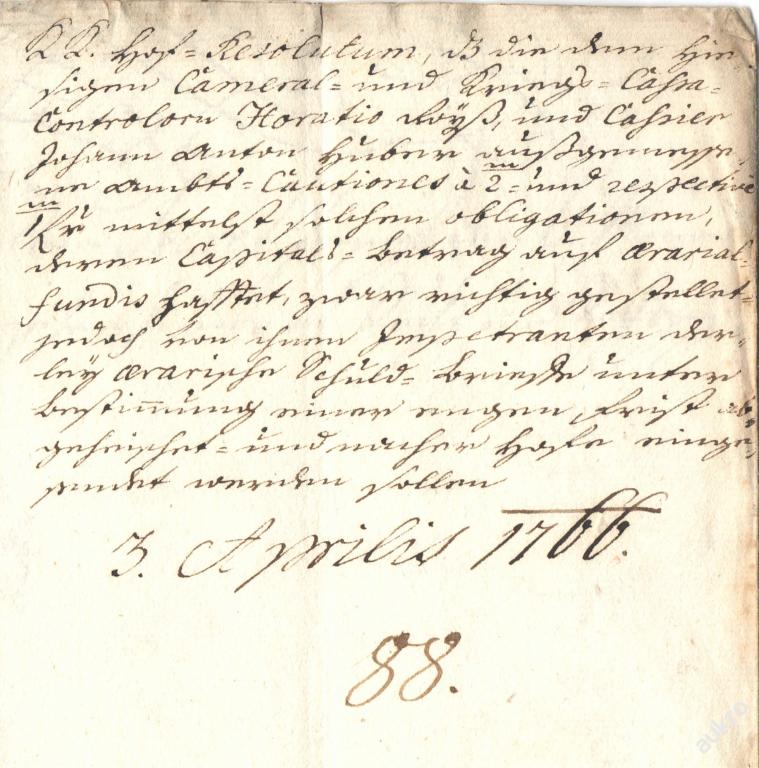 K. K. Hof=Resolutum, dß die dem hie=
sigen Cameral= und Kriegs=Cassa=
Controlorn Horatio Royß, und Cassier
Johann Anton Huber außgemesse=
ne Ambts=Cautiones à 2/m= und respective
1/m fr mittelst solchen obligationen,
deren Capitals=betrag auf ærarial=
fundis hafftet, zwar richtig gestellet=
jedoch von ihnen Impetranten der=
ley ærarische Schuld=brieffe unter
bestim̄ung einer engen frist ab=
geheischet= und nacher Hofe einge=
sendet werden sollen
3. Aprilis 1766.
88.
aukro